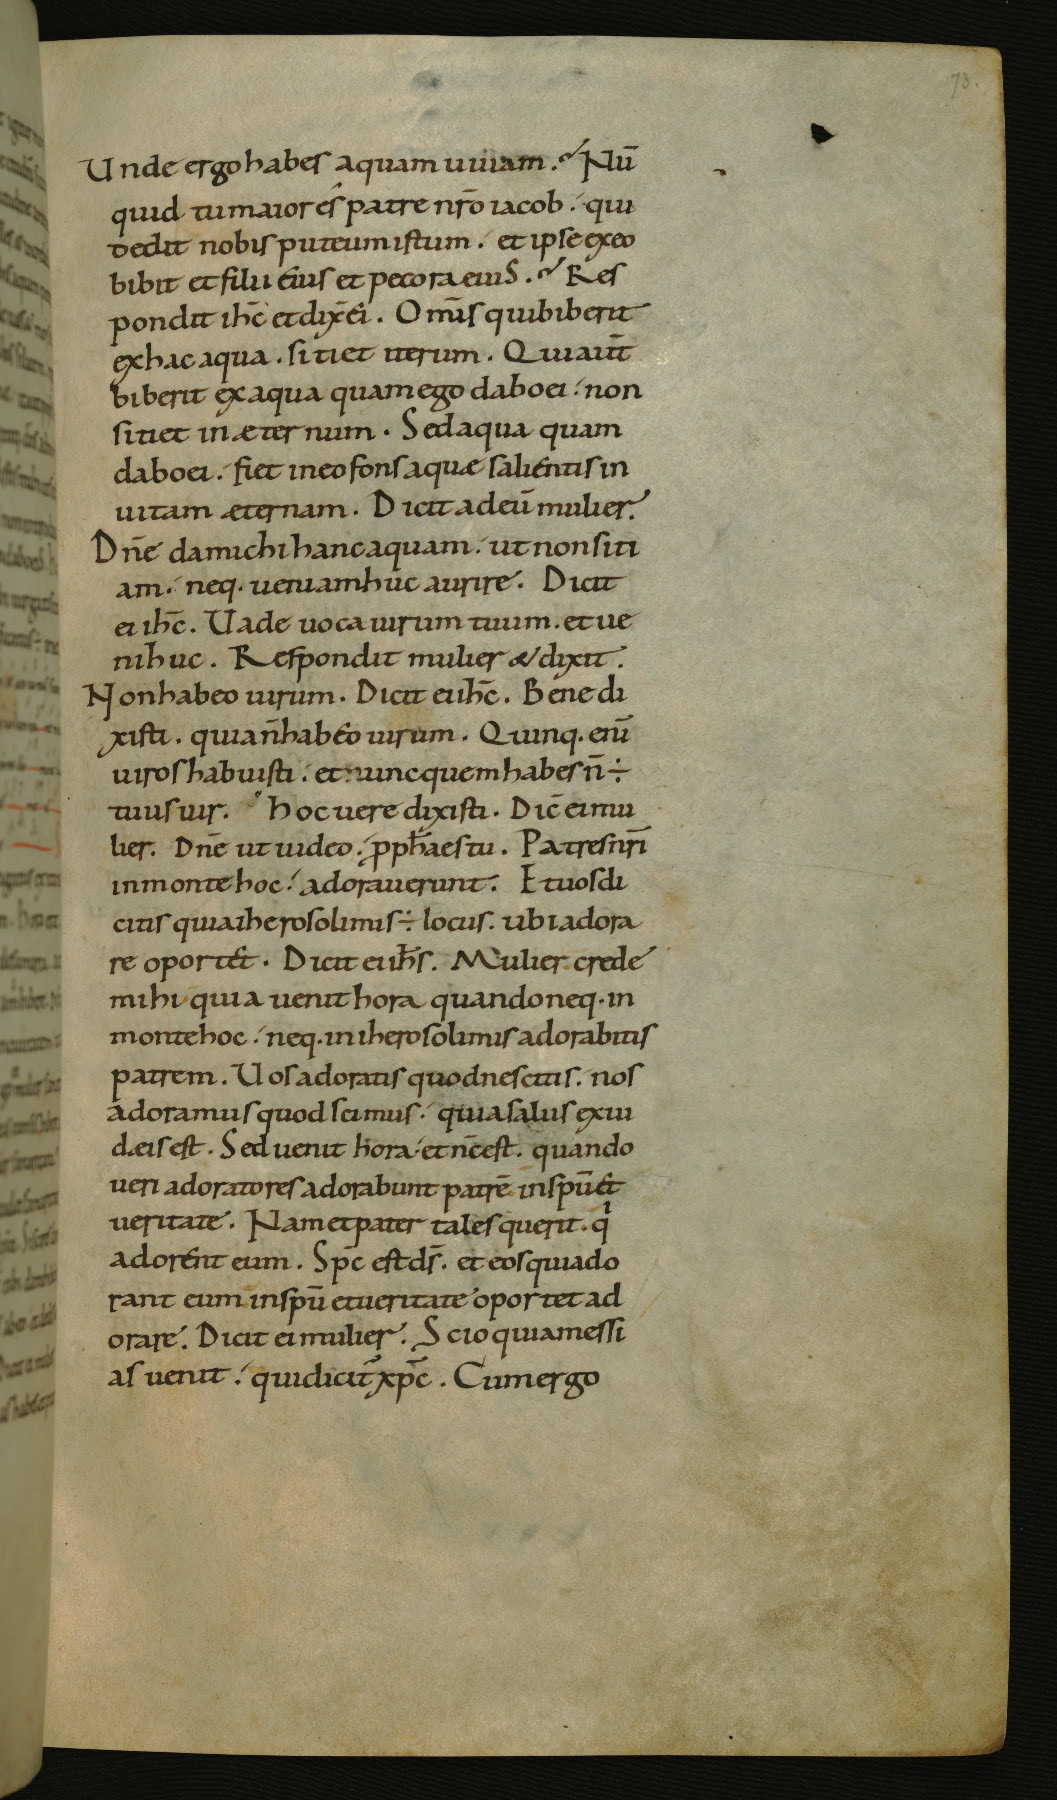 73.
Unde ergo habes aquam uiuam. Nū
quid tu maior es patre nr̄o iacob. qui
dedit nobis puteum istum. et ipse exeo
bibit et filii eius et pecora eius. Res
pondit ih̄c et dix̄ ei. Om̄is qui biberit
ex hac aqua. sitiet iterum. Qui aut̄
biberit ex aqua quam ego dabo ei. non
sitiet in æternum. Sed aqua quam
dabo ei. fiet in eo fons aquæ salientis in
uitam æternam. Dicit ad eū mulier.
Dn̄e da michi hanc aquam. ut non siti
am. neq. ueniam huc aurire. Dicit
ei ih̄c. Uade uoca uirum tuum. et ue
ni huc. Respondit mulier & dixit.
Non habeo uirum. Dicit ei ih̄c. Bene di
xisti. quia n̄ habeo uirum. Quinq. enī
uiros habuisti. et nunc quem habes n̄ ÷
tuus uir. hoc uere dixisti. Dic̄ ei mu
lier. Dn̄e ut uideo. ꝓph̄a es tu. Patres nr̄i
in monte hoc. adorauerunt. Et uos di
citis quia iherosolimis ÷ locus. ubi adora
re oportet. Dicit ei ih̄s. Mulier crede
mihi quia uenit hora quando neq. in
monte hoc. neq. in iherosolimis adorabitis
patrem. Uos adoratis quod nescitis. nos
adoramus quod scimus. quia salus ex iu
dæis est. Sed uenit hora. et nc̄ est. quando
ueri adoratores adorabunt patrē in spū et
ueritate. Nam et pater tales querit. qi
adorent eum. Sp̄c est ds̄. et eos qui ado
rant eum in spū et ueritate oportet ad
orare. Dicit ei mulier. Scio quia messi
as uenit. qui dicit̄ xp̄c. Cum ergo